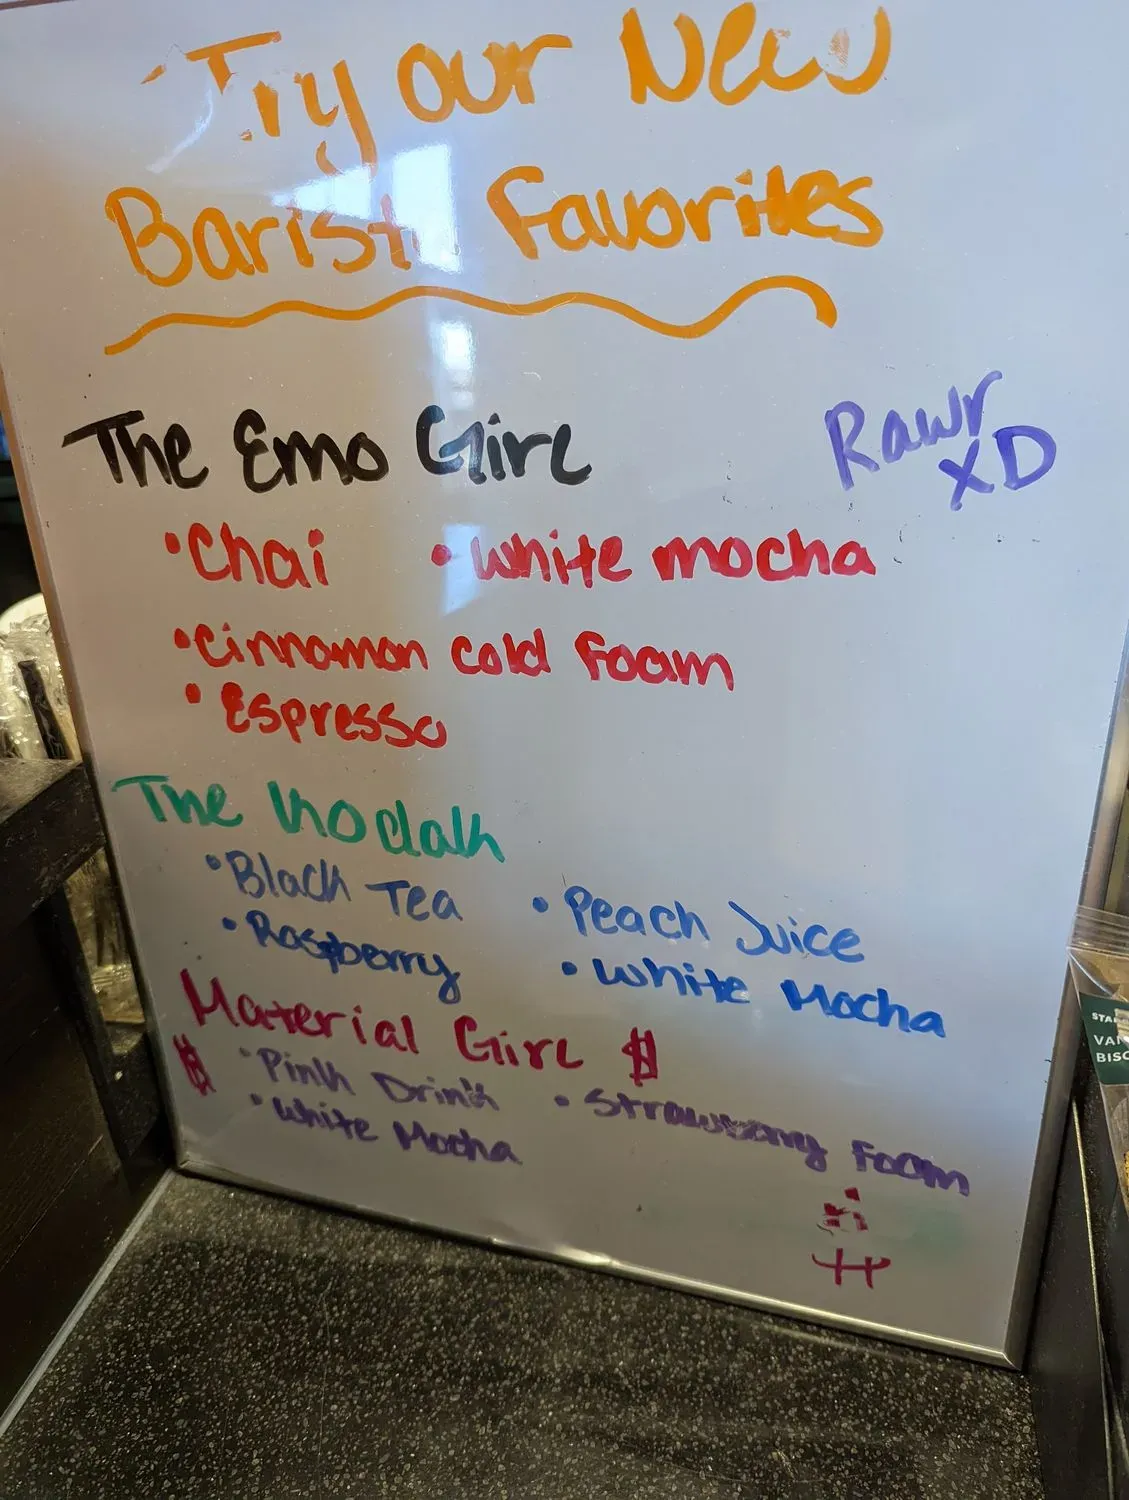 Try our New
Barista Favorites
The Emo Girl
Rawr
XD
• Chai • White mocha
• Cinnamon cold foam
• Espresso
The Kodak
• Black Tea • Peach Juice
• Raspberry • White Mocha
Material Girl $
$ • Pink Drink • Strawberry Foam
• White Mocha
VAN
BISC